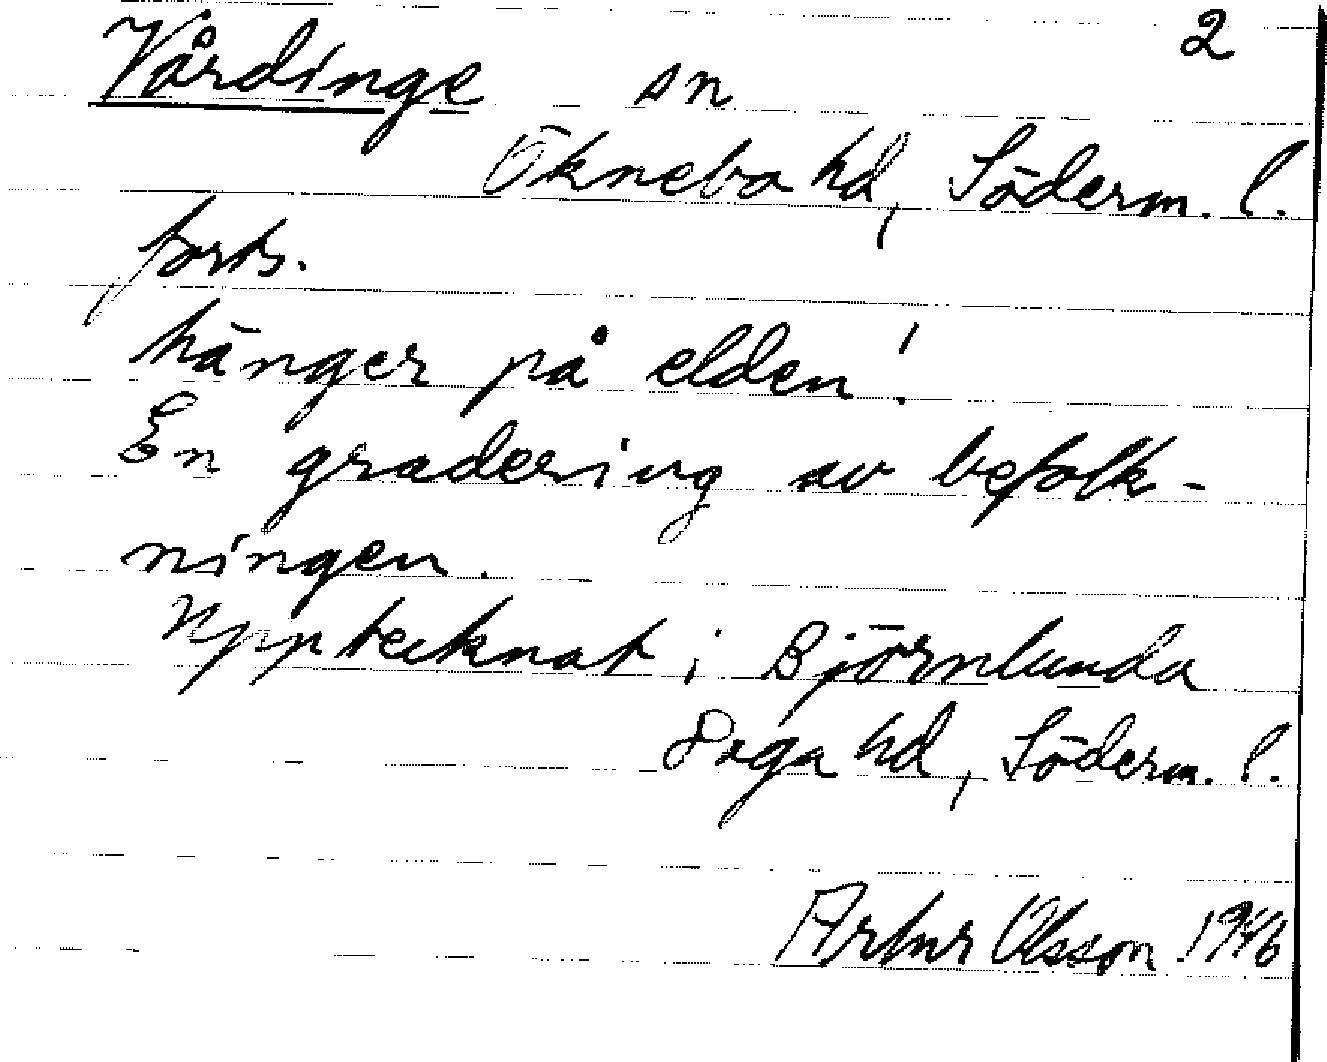 2
Vårdinge sn
Öknebo hd, Söderm. l.
forts.
hänger på elden!
En gradering av befolk-
ningen.
Upptecknat i Björnlunda
Daga hd, Söderm. l.
Artur Olsson 1946